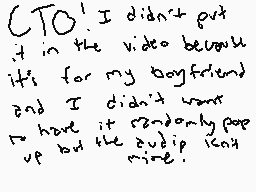 CTO! I didn't put
it in the video because
it's for my boyfriend
and I didn't want
to have it randomly pop
up but the audio isn't
mine!